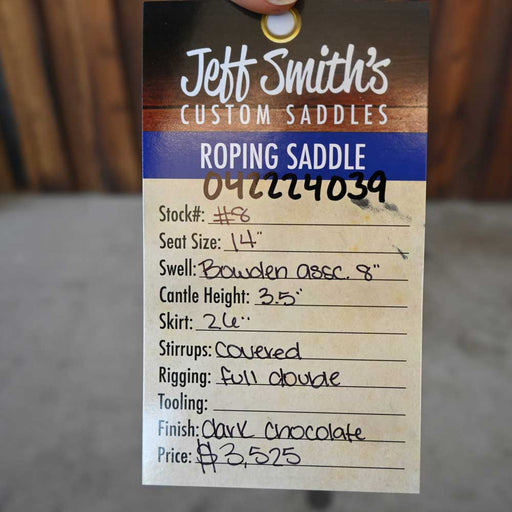 Jeff Smith's
CUSTOM SADDLES
ROPING SADDLE
042224039
Stock#: #8
Seat Size: 14"
Swell: Bowden assc. 8"
Cantle Height: 3.5"
Skirt: 26"
Stirrups: Covered
Rigging: full double
Tooling:
Finish: dark chocolate
Price: $3,525